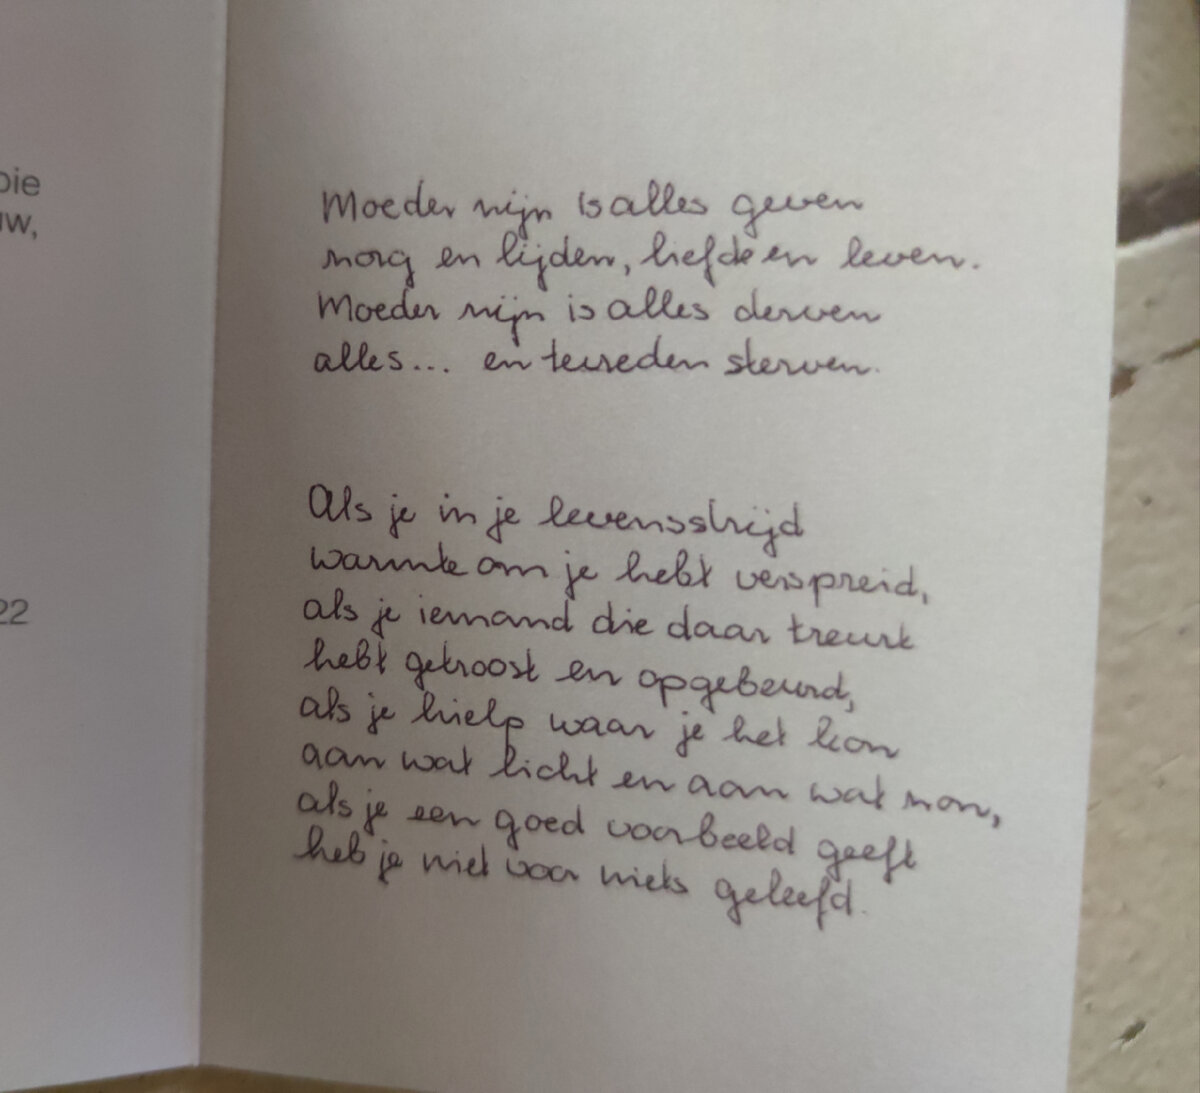 oie
uw,
22
Moeder zijn is alles geven
zorg en lijden, liefde en leven.
Moeder zijn is alles derven
alles... en tevreden sterven.
Als je in je levensstrijd
warmte om je hebt verspreid,
als je iemand die daar treurt
hebt getroost en opgebeurd,
als je hielp waar je het kon
aan wat licht en aan wat zon,
als je een goed voorbeeld geeft
heb je niet voor niets geleefd.